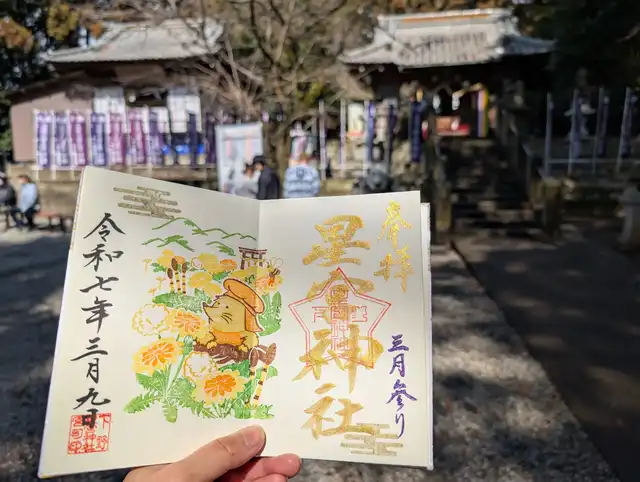 奉拝
星宮神社
三月参り
令和七年三月九日